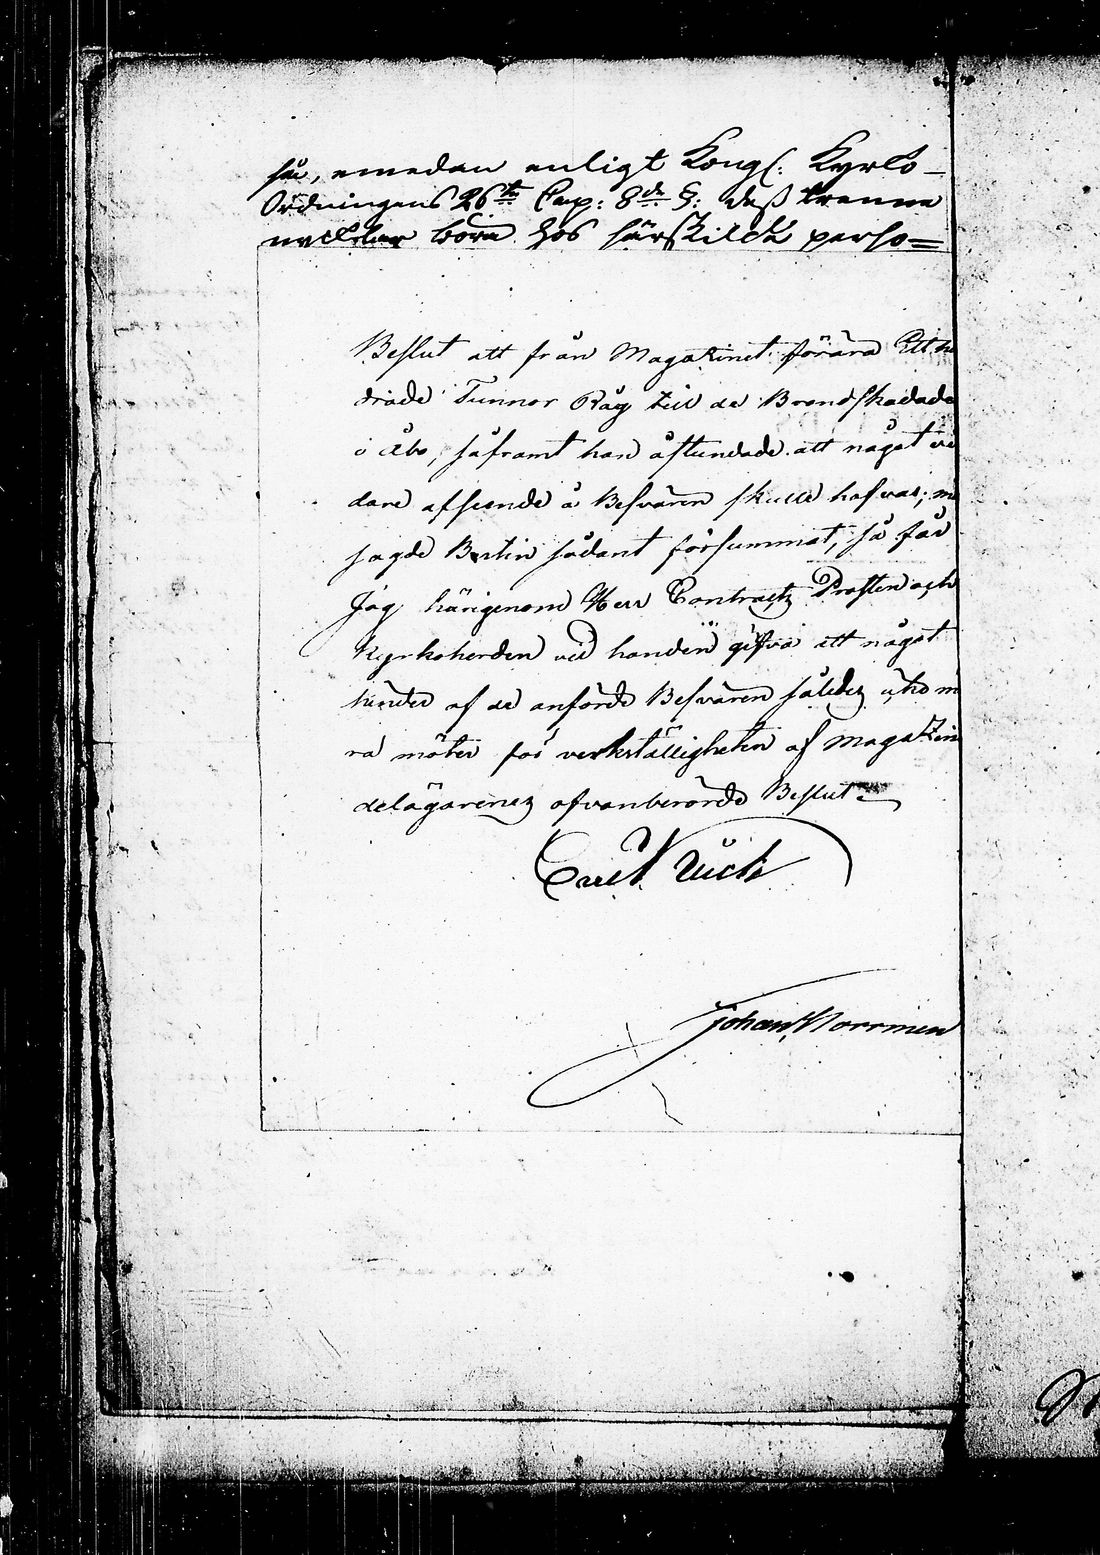 så, emedan enligt Kongl: Kyrko-
Ordningens 26te Cap: 8de §: dess trenne
nycklar böra hos särskildt perso=
Beslut att från Magazinet förära Ett hu
drade Tunnor Råg till de Brandskadade
i Åbo, såframt han åstundade att något vi
dare afseende å Besvären skulle hafvas; m
sagde Bertin sådant försummat, så får
Jag härigenom Herr Contracts Prosten och
Kyrkoherden vid handen gifva att något
hinder af de anförde Besvären såledez icke m
ra möter för verkställigheten af Magazin
delägarenez ofvanberörde Beslut
Johan Norrmen